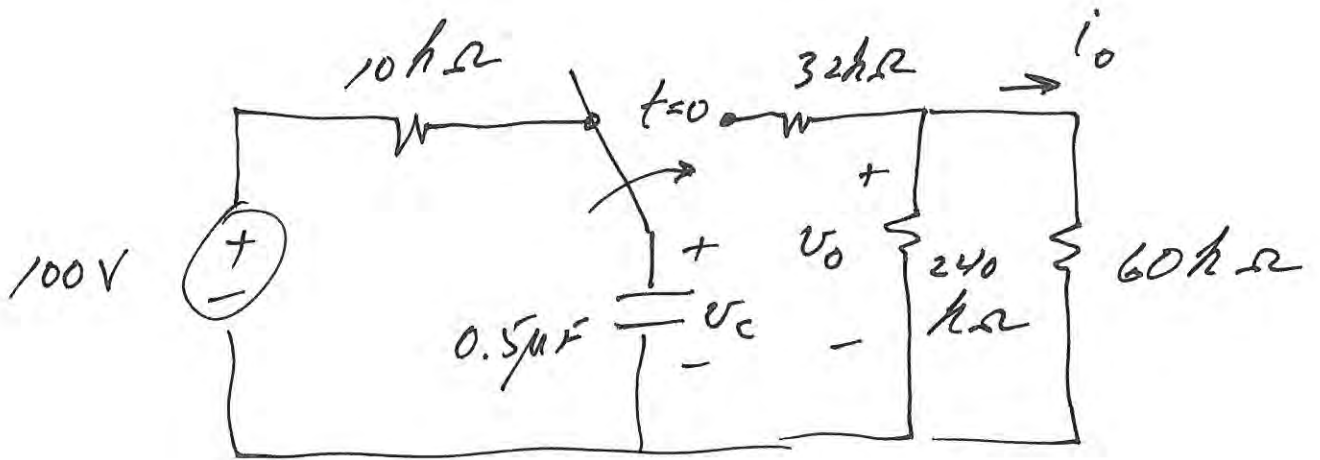 10kΩ
t=0
32kΩ
i₀
100V
+
−
0.5μF
+
v_c
−
+
v₀
−
240
kΩ
60kΩ